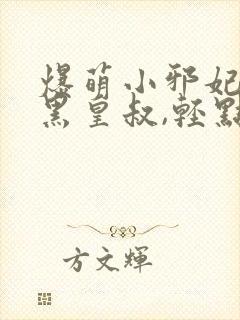 爆萌小邪妃
黑皇叔,輕點
方文輝